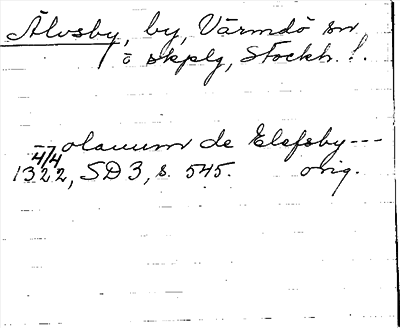 Älvsby, by, Värmdö sn
o skplg, Stockh. l.
--- olauum de Elefsby ---
4/4
1322, SD 3, s. 545. orig.